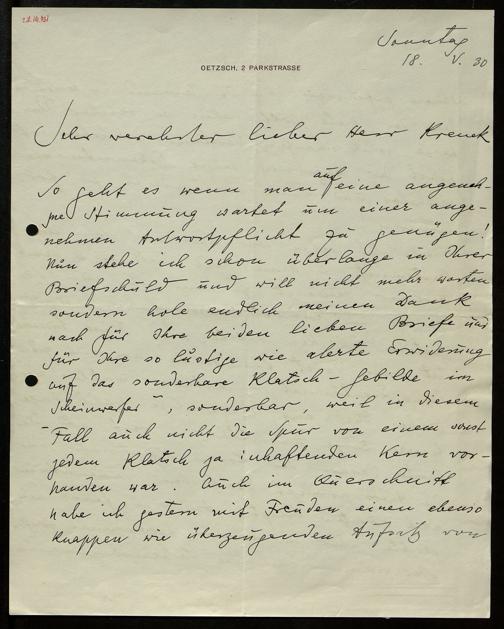 Sonntag
18. V. 30
OETZSCH, 2 PARKSTRASSE
Sehr verehrter lieber Herr Krenek
So geht es wenn man auf eine angeneh-
me Stimmung wartet um einer ange-
nehmen Antwortpflicht zu genügen!
Nun stehe ich schon überlange in Ihrer
Briefschuld und will nicht mehr warten
sondern hole endlich meinen Dank
nach für Ihre beiden lieben Briefe und
für Ihre so lustige wie alerte Erwiderung
auf das sonderbare Klatsch-Gebilde im
"Scheinwerfer", sonderbar, weil in diesem
Fall auch nicht die Spur von einem sonst
jedem Klatsch ja inhaftenden Kern vor-
handen war. Auch im Querschnitt
habe ich gestern mit Freuden einen ebenso
knappen wie überzeugenden Aufsatz von